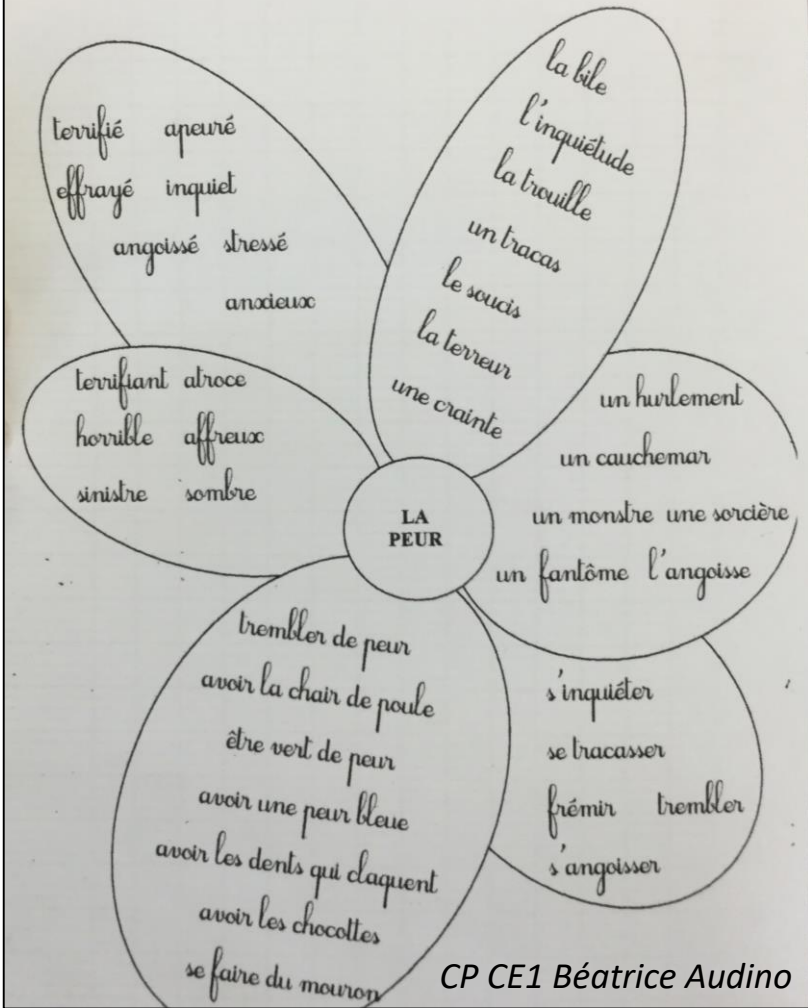 terrifié apeuré
effrayé inquiet
angoissé stressé
anxieux
la bile
l'inquiétude
la trouille
un tracas
le soucis
la terreur
une crainte
terrifiant atroce
horrible affreux
sinistre sombre
LA
PEUR
un hurlement
un cauchemar
un monstre une sorcière
un fantôme l'angoisse
trembler de peur
avoir la chair de poule
être vert de peur
avoir une peur bleue
avoir les dents qui claquent
avoir les chocottes
se faire du mouron
s'inquiéter
se tracasser
frémir trembler
s'angoisser
CP CE1 Béatrice Audino